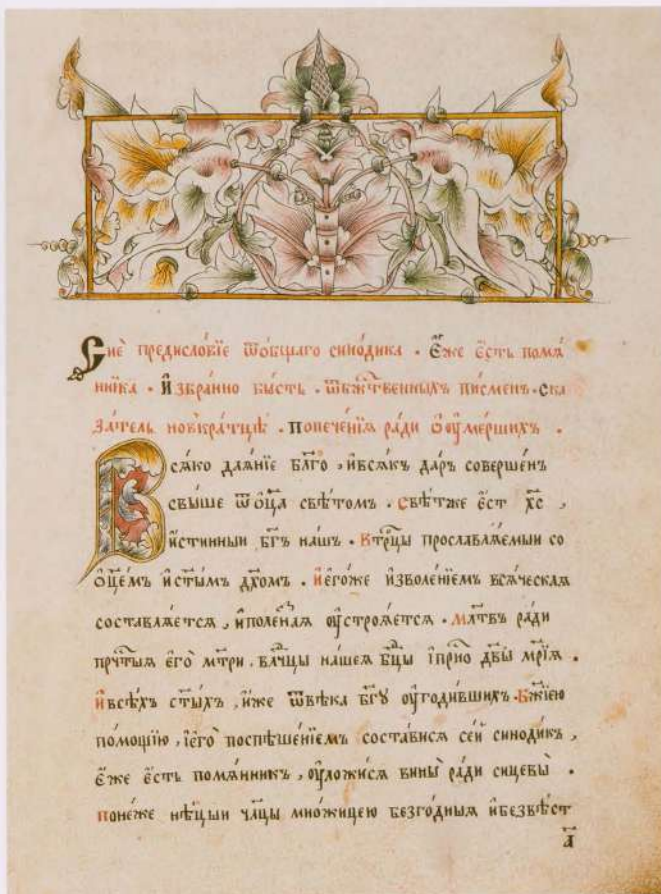 Сиѐ предисло́вїе ѿо́бщаго сино́дика . Є҆́же є҆́сть помѧ́
нника . И҆збранно бы́сть . ѿбж҃твенныхъ писменъ . ска
за́тель новкра́тцѣ . попече́нїѧ ра́ди ѻ҆оу҆ме́ршихъ .
Всѧ́ко даѧ́нїе бл҃го , и҆всѧ́къ да́ръ соверше́нъ
свы́ше ѿѻ҆ц҃а свѣ́томъ . свѣ́тже є҆́ст хс҃ ,
и҆́стинныи бг҃ъ на́шъ . втрⷪ҇цы прославлѧ́емыи со
ѻ҆ц҃е́мъ и҆ст҃ы́мъ дх҃омъ . и҆є҆го́же и҆зволе́нїемъ всѧ́ческаѧ
составлѧ́етсѧ , и҆поле́знаѧ оу҆строѧ́етсѧ . мл҃твъ ра́ди
прч҃тыѧ є҆го̀ мт҃ри , влч҃цы на́шеѧ бц҃ы і҆прⷭ҇но дв҃ы мр҃їѧ .
и҆всѣ́хъ ст҃ы́хъ , и҆́же ѿвѣ́ка бг҃ꙋ оу҆годи́вшихъ . Бж҃їею
по́мощїю , і҆є҆гѡ̀ поспѣше́нїемъ соста́висѧ се́й сино́дик ,
є҆́же є҆́сть помѧ́нникъ , оу҆ложи́сѧ вины̀ ра́ди сицевы̀ .
поне́же нѣ́цыи ч҃лцы мно́жицею безго́дныѧ и҆безвѣ́ст
а҃